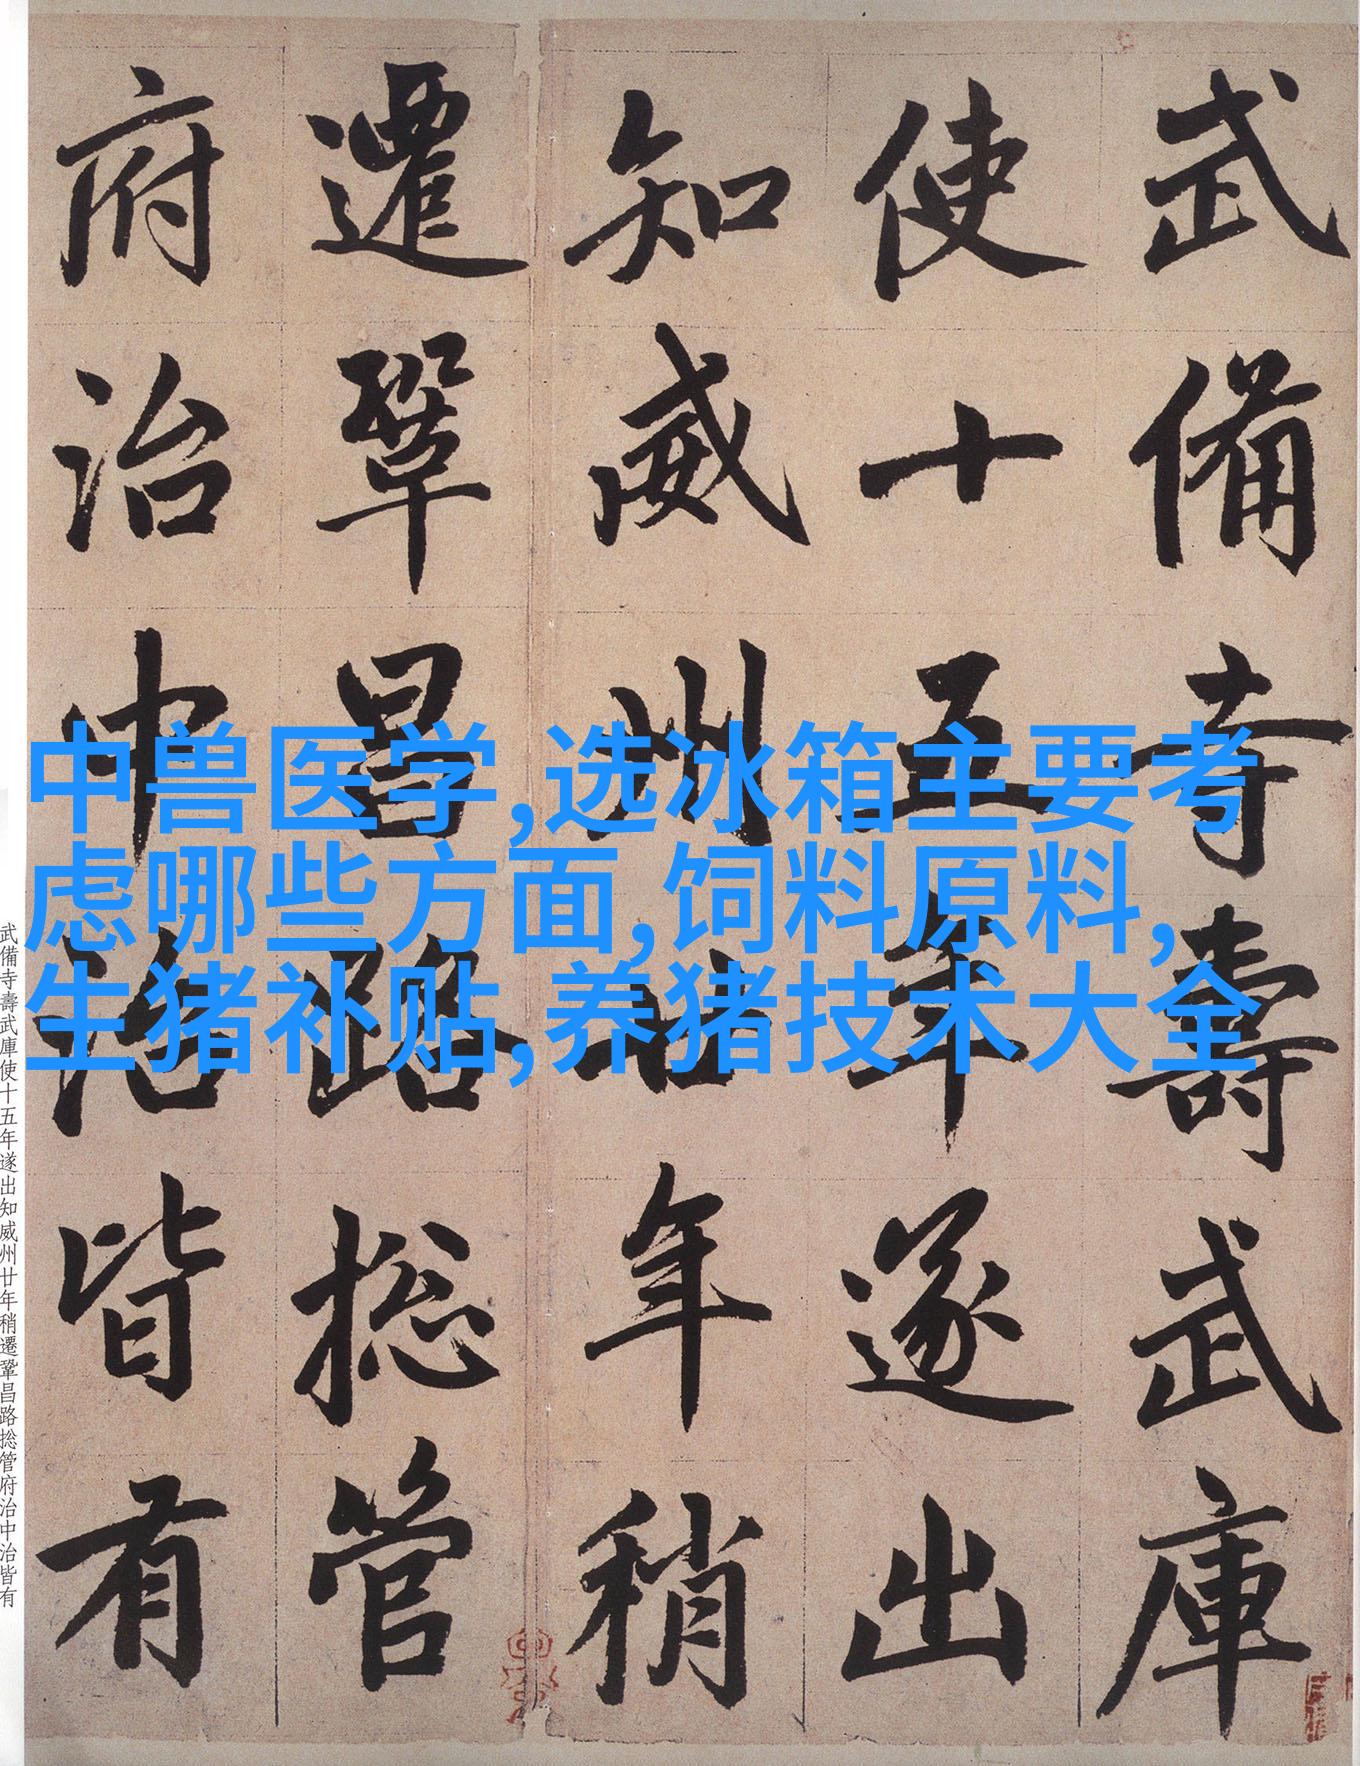 武備寺壽武庫
使十五年遂出
知威州廿年稍
遷鞏昌路捴管
府治中治皆有
中兽医学,选冰箱主要考
虑哪些方面,饲料原料,
生猪补贴,养猪技术大全
武備寺壽武庫使十五年遂出知威州廿年稍遷鞏昌路捴管府治中治皆有